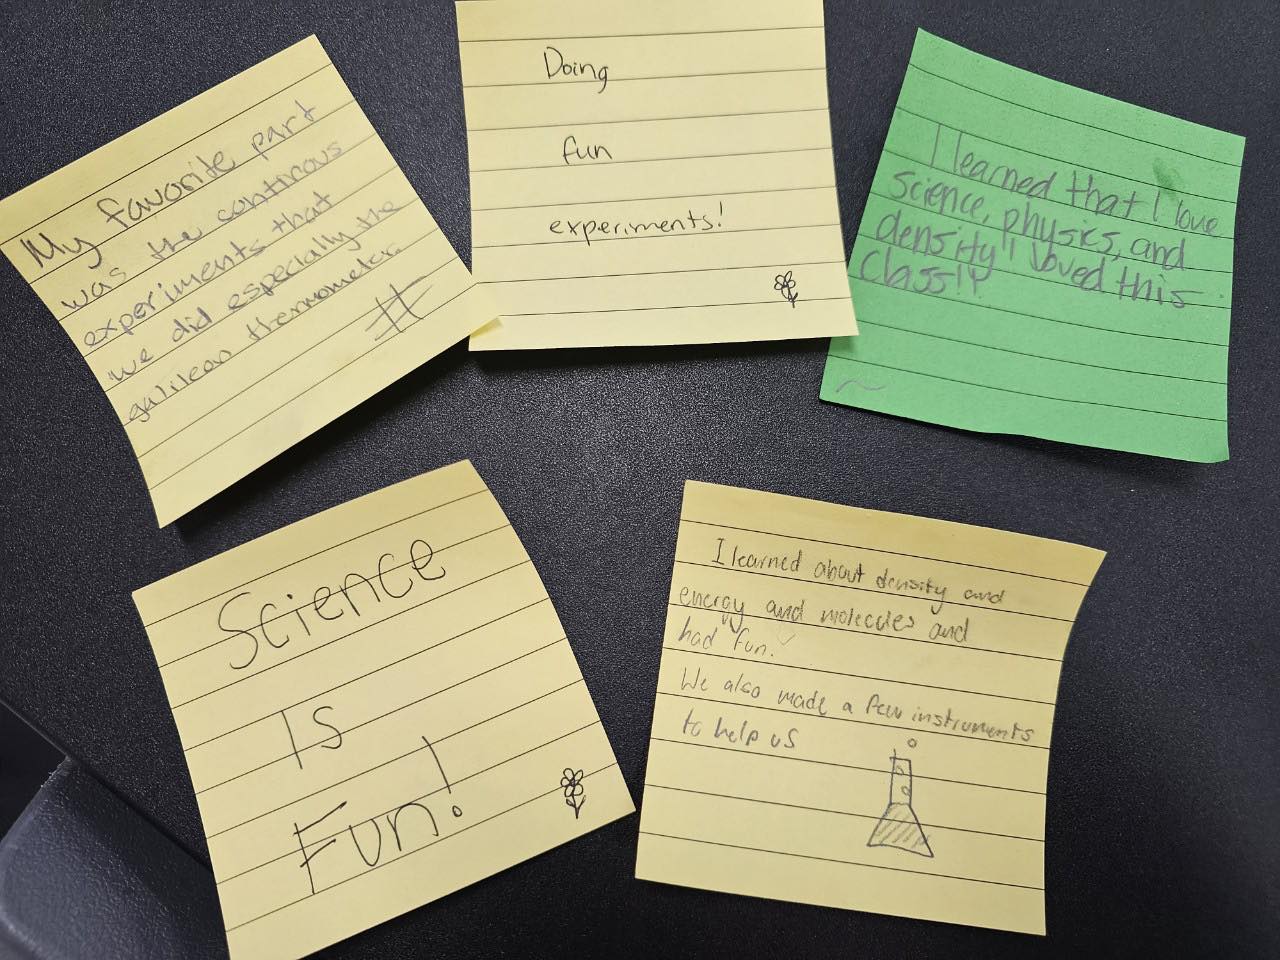 My favorite part
was the continous
experiments that
we did especially the
galilean thermometer.
Doing
fun
experiments!
I learned that I love
science, physics, and
density! I loved this
class!!
Science
Is
Fun!
I learned about density and
energy and molecules and
had fun.
We also made a few instruments
to help us